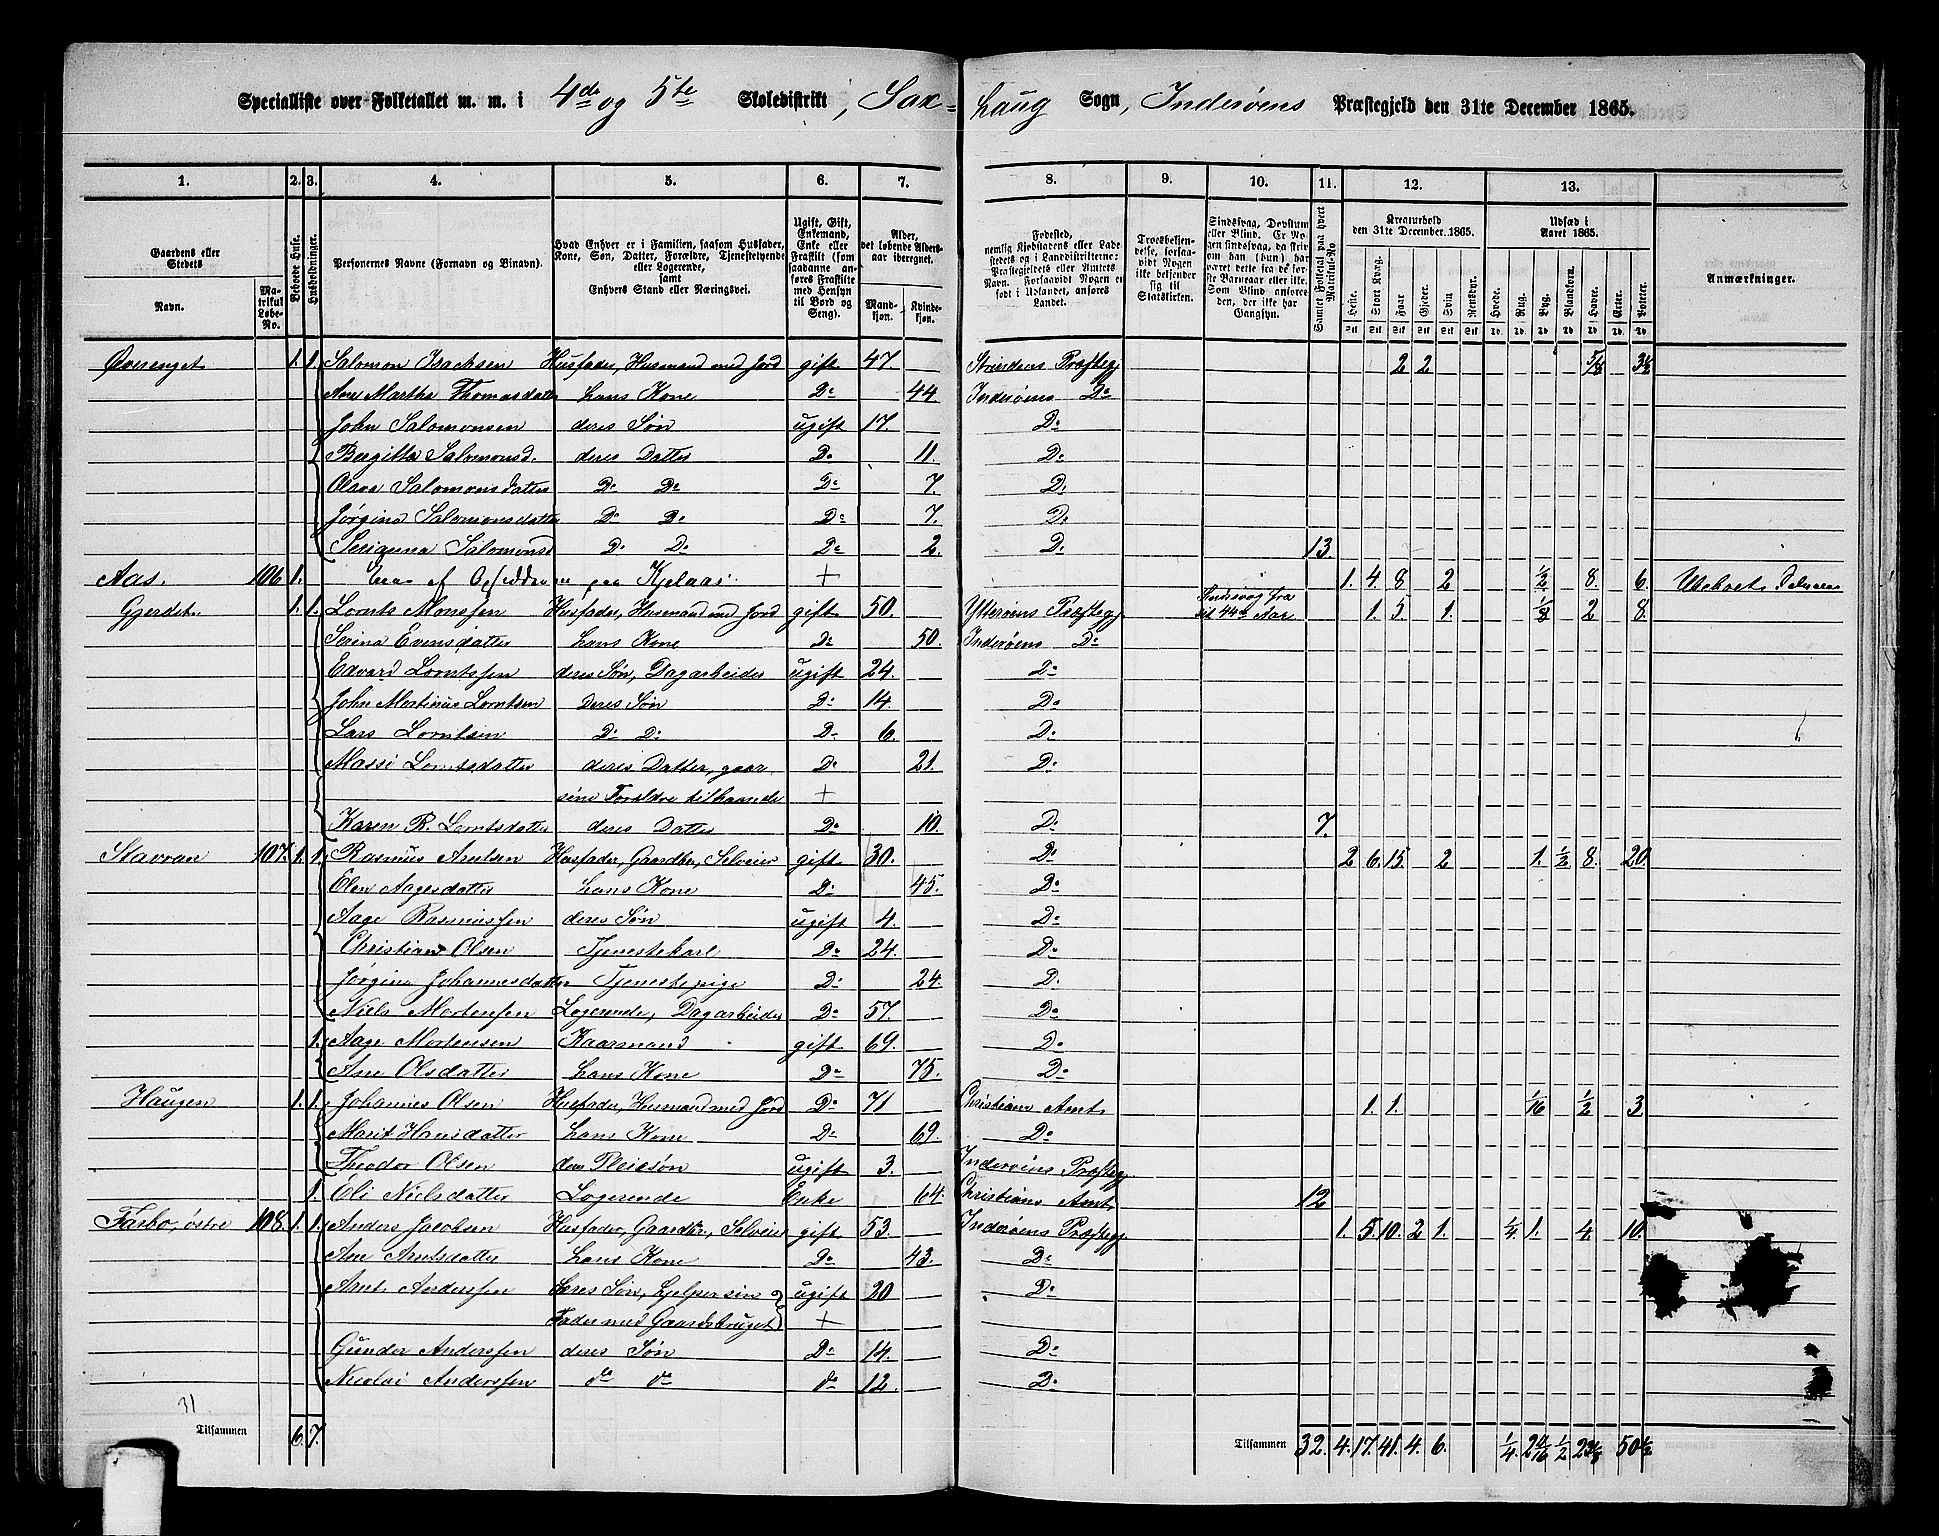 Specialliste over Folketallet m. m. i 4de og 5te Skoledistrikt, Sax-
haug Sogn, Inderøens Præstegjeld den 31te December 1865.
1. 2. 3. 4. 5. 6. 7. 8. 9. 10. 11. 12. 13.
Gaardens eller Stedets Navn. Matrikul Løbe-No. Beboede Huse. Husholdninger. Personernes Navne (Fornavn og Binavn). Hvad Enhver er i Familien, saasom Husfader, Kone, Søn, Datter, Forældre, Tjenestetyende eller Logerende, samt Enhvers Stand eller Næringsvei. Ugift, Gift, Enkemand, Enke eller Fraskilt (som saadanne anføres Fraskilte med Hensyn til Bord og Seng). Alder, det løbende Aldersaar iberegnet. Mandkjøn. Kvindekjøn.
Fødested, nemlig Kjøbstadens eller Ladestedets eller i Landdistrikterne: Præstegjeldets eller Amtets Navn. Forsaavidt Nogen er født i Udlandet, anføres Landet. Troesbekjendelse, forsaavidt Nogen ikke bekjender sig til Statskirken. Sindssvag, Døvstum eller Blind. Samlet Folketal paa hvert Matrikul-No. Kreaturhold den 31te December 1865. Heste. Stort Kvæg. Faar. Gjeder. Svin. Rensdyr. Udsæd i Aaret 1865. Hvede. Rug. Byg. Blandkorn. Havre. Erter. Poteter. Anmærkninger.
Øverenget 1. 1. Salomon Isachsen Husfader, Husmand med Jord gift 47. Strindens Præstegj 2 2 3½
Ane Martha Thomasdatter hans Kone Do 44 Inderøens Do
John Salomonsen deres Søn ugift 17. Do
Beegitta Salomonsd. deres Datter Do 11. Do
Olava Salomonsdatter Do Do Do 7. Do
Jørgina Salomonsdatter Do Do Do 7. Do
Salomonsd Do Do Do 2. Do 13.
Aas. 106 1. paa + 1. 4 8 2 ½ 8. 6.
Gjerdet. 1. 1. Lornts Monssen Husfader, Husmand med Jord gift 50. Ytterøens Præstegj Sindsvag fra sit 44de Aar 1. 5. 1. ⅛ 2 8.
Serina Evensdatter hans Kone Do 50. Inderøens Do
Edvard Lorntssen deres Søn, Dagarbeider ugift 24. Do
John Martinus Lorntsen deres Søn Do 14. Do
Lars Lorntsen Do Do Do 6. Do
Massi Lorntsdatter deres Datter, gaar Do 21. Do
sine Forældre tilhaande +
Karen R. Lorntsdatter deres Datter Do 10. Do 7.
Stavran 107. 1. 1. Rasmus Arntsen Husfader, Gaardbr., Selveier gift 30. Do 2 6. 15. 2 1. ½ 8. 20.
Elen Aagesdatter hans Kone Do 45. Do
Aage Rasmussen deres Søn ugift 4. Do
Christian Olsen Tjenestekarl Do 24. Do
Jørgina Johannesdatter Tjenestepige Do 24. Do
Niels Mortensen Logerende, Dagarbeider Do 57. Do
1. Aage Mortensen Kaarmand gift 69. Do
Ane Olsdatter hans Kone Do 75. Do
Haugen 1. 1. Johannes Olsen Husfader, Husmand med Jord Do 71 Christians Amt. 1. 1. 1/16 ½ 3.
Marit Hansdatter hans Kone Do 69. Do
Theodor Olsen deres Pleiesøn ugift 3. Inderøens Præstegj
1. Eli Nielsdatter Logerende Enke 64. Christians Amt 12
Farbo, østre 108. 1. 1. Anders Jacobsen Husfader, Gaardbr., Selveier gift 53. Inderøens Præstegj 1. 5. 10. 2 1. ¼ 1. 4. 10.
Ane Arntsdatter hans Kone Do 43. Do
Arnt Anderssen deres Søn, hjelper sin ugift 20 Do
Fader med Gaardsbruget +
Gunder Anderssen deres Søn Do 14. Do
Nicolai Anderssen do do do 12. Do
31
Tilsammen 6. 7. Tilsammen 32. 4. 17. 41. 4. 6. ¼ ½ 50½